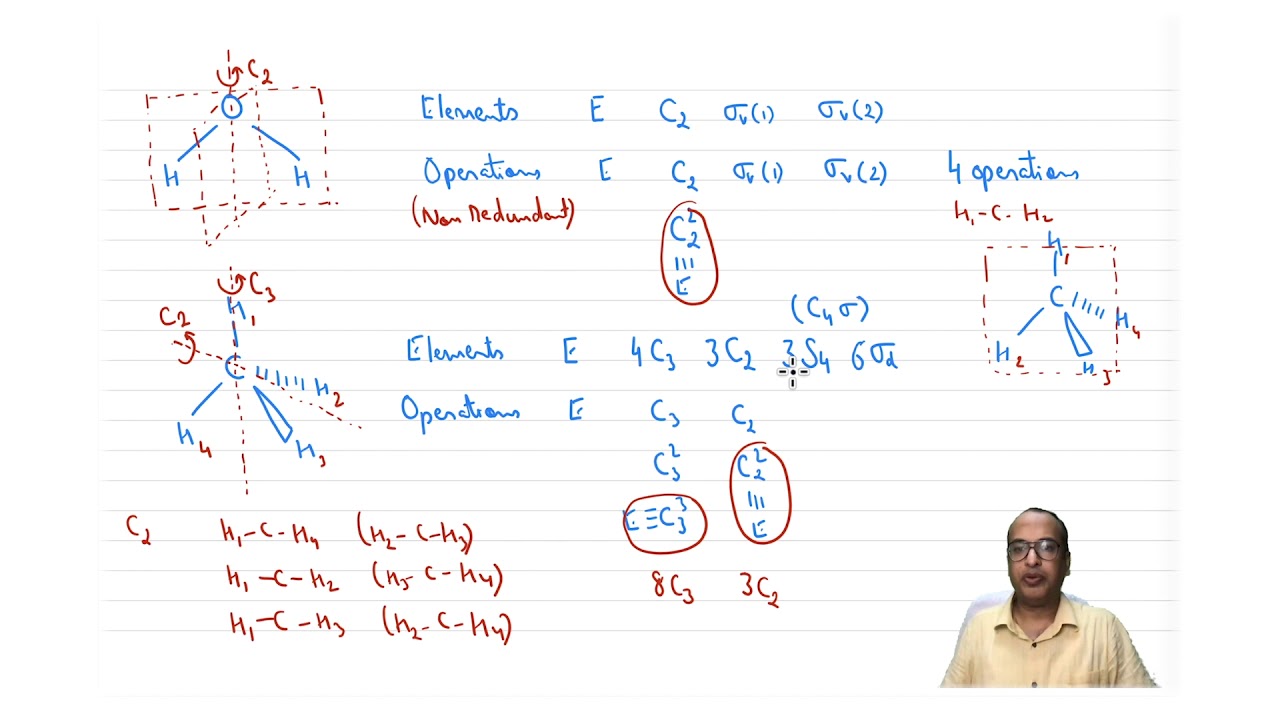 C₂
O
H H
Elements E C₂ σᵥ(1) σᵥ(2)
Operations E C₂ σᵥ(1) σᵥ(2) 4 operations
(Non Redundant)
C₂²
≡
E
H₁-C-H₂
H₁
C
H₂ H₃ H₄
C₃
C₂
H₁
C
H₂
H₄ H₃
(C₄ σ)
Elements E 4C₃ 3C₂ 3S₄ 6σd
Operations E C₃ C₂
C₃² C₂²
≡
E≡C₃³ E
8C₃ 3C₂
C₂ H₁-C-H₄ (H₂-C-H₃)
H₁-C-H₂ (H₃-C-H₄)
H₁-C-H₃ (H₂-C-H₄)